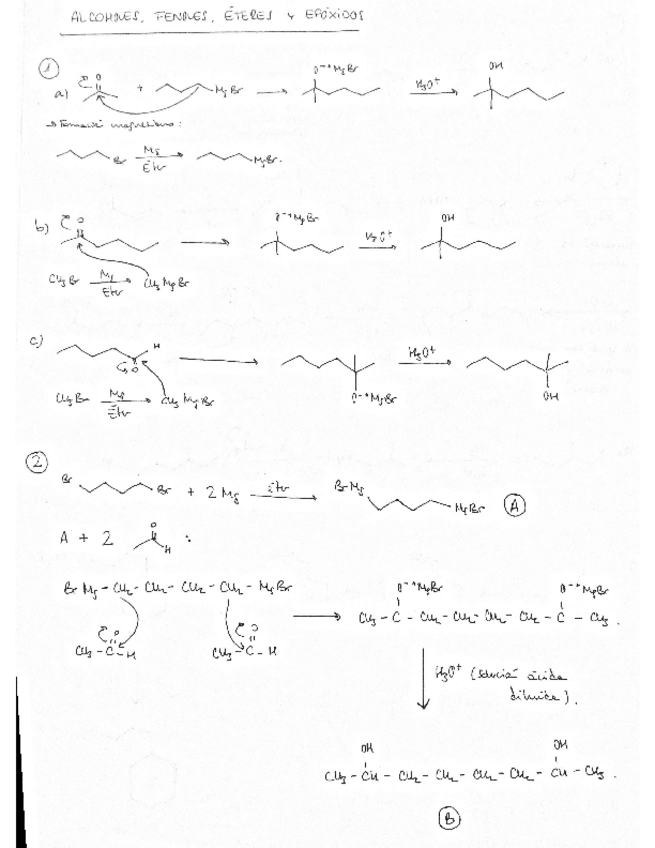 ALCOHOLES, FENOLES, ÉTERES Y EPÓXIDOS
1
a) O + MgBr → O⁻ ⁺MgBr H₃O⁺ → OH
→ magnesiano:
Br Mg Éter → MgBr.
b) O → O⁻ ⁺MgBr H₃O⁺ → OH
CH₃Br Mg Éter → CH₃MgBr
c) H O → O⁻ ⁺MgBr H₃O⁺ → OH
CH₃Br Mg Éter → CH₃MgBr
2
Br Br + 2 Mg éter → BrMg MgBr A
A + 2 O H :
BrMg - CH₂ - CH₂ - CH₂ - CH₂ - MgBr → O⁻ ⁺MgBr O⁻ ⁺MgBr
CH₃ - C - CH₂ - CH₂ - CH₂ - CH₂ - C - CH₃.
O O
CH₃ - C - H CH₃ - C - H
H₃O⁺ (solución ácida
diluida).
OH OH
CH₃ - CH - CH₂ - CH₂ - CH₂ - CH₂ - CH - CH₃.
B